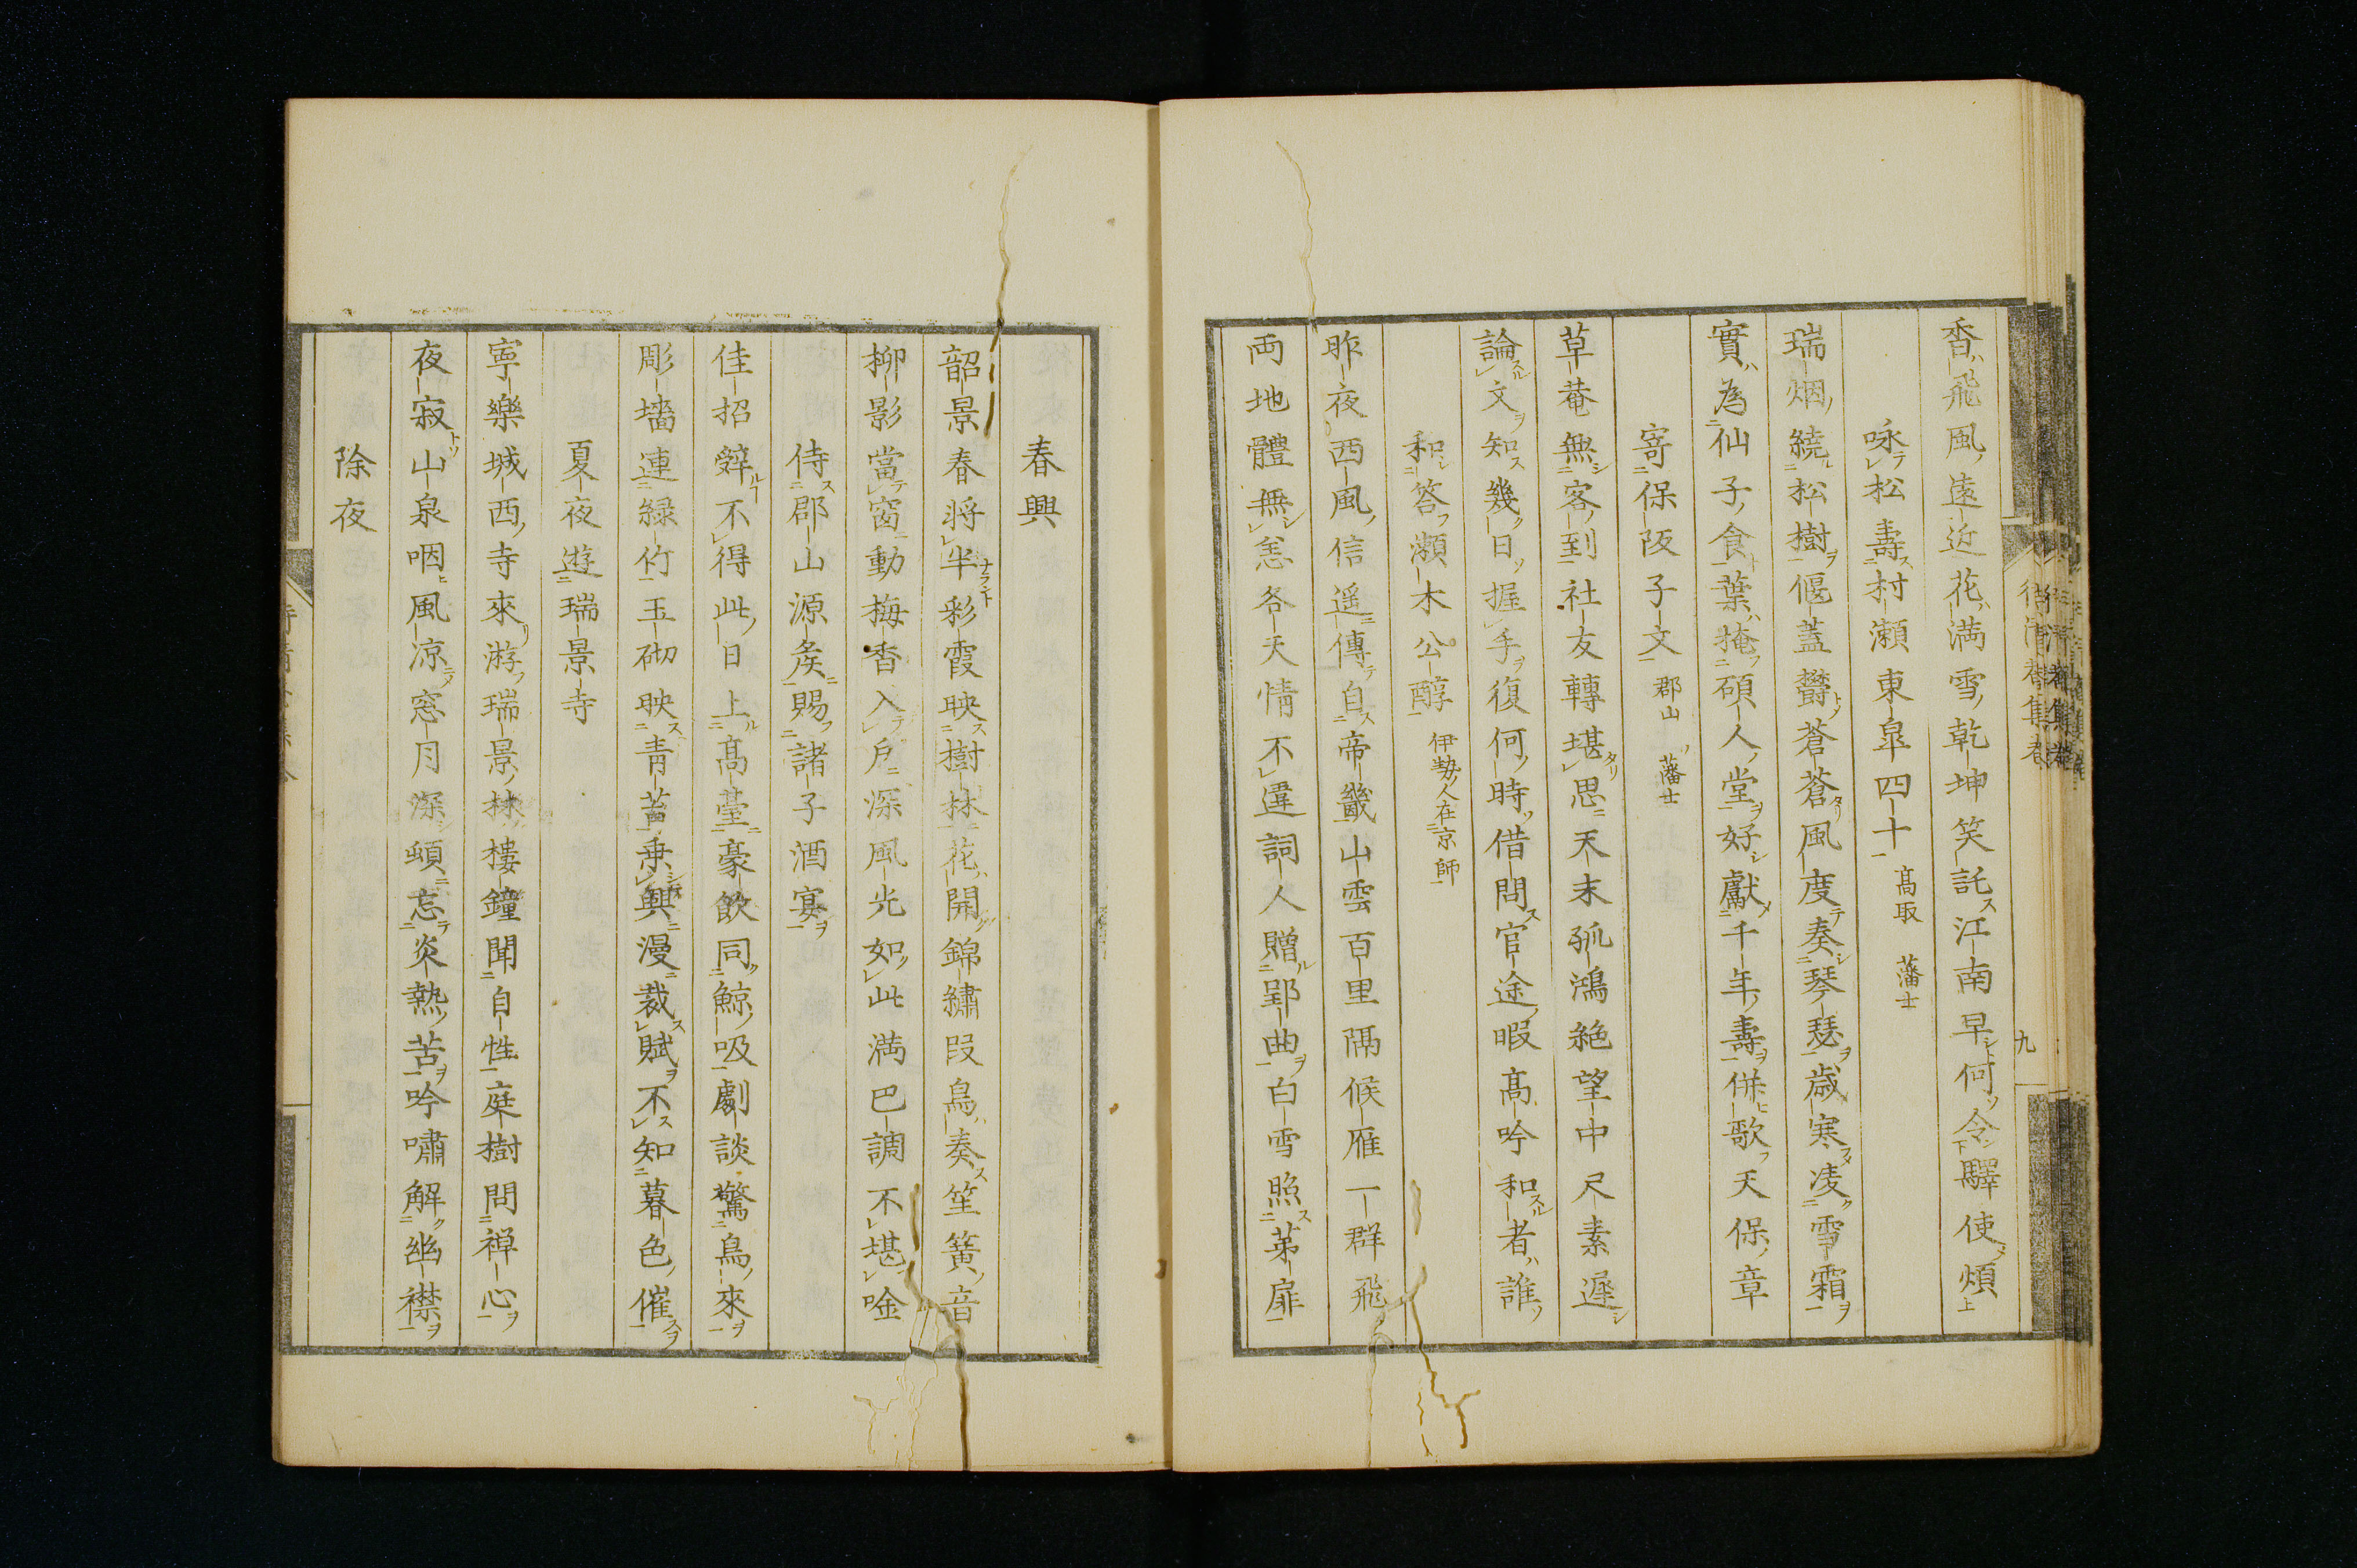 香飛風遠近花満雪乾坤笑託江南早何令驛使煩
咏松壽村瀬東皐四十 髙取 藩士
瑞烟繞松樹偃蓋欝蒼蒼風度奏琴瑟歳寒凌雪霜
實為仙子食葉掩碩人堂好獻千年壽併歌天保章
寄保阪子文 郡山 藩士
草菴無客到社友轉堪思天末孤鴻絶望中尺素遲
論文知幾日握手復何時借問官途暇髙吟和者誰
和答瀬木公醇 伊勢人在京師
昨夜西風信遥傳自帝畿山雲百里隔候雁一群飛
両地體無恙各天情不違詞人贈郢曲白雪照茅扉
九
春興
韶景春将半彩霞映樹林花開錦繍段鳥奏笙簧音
柳影當窗動梅香入戶深風光如此満巴調不堪唫
侍郡山源矦賜諸子酒宴
佳招辤不得此日上髙臺豪飲同鯨吸劇談驚鳥來
彫墻連緑竹玉砌映青苔乗興漫裁賦不知暮色催
夏夜遊瑞景寺
寧樂城西寺來游瑞景林樓鐘聞自性庭樹問禅心
夜寂山泉咽風凉窓月深頓忘炎熱苦吟嘯解幽襟
除夜